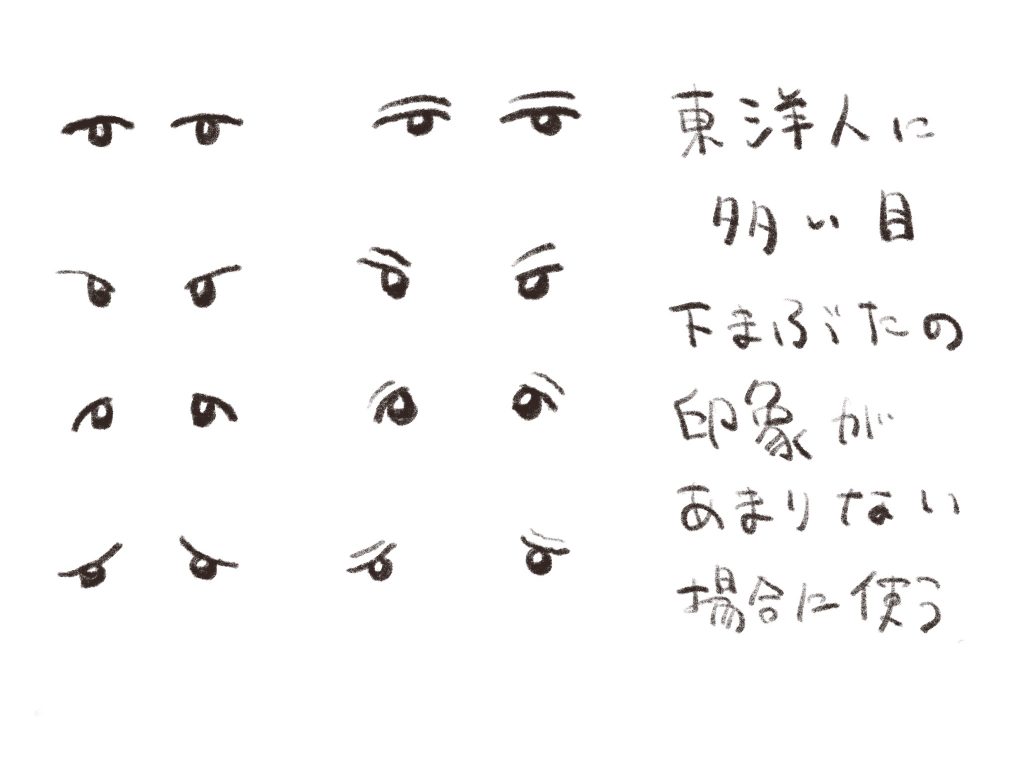 東洋人に
多い目
下まぶたの
印象が
あまりない
場合に使う